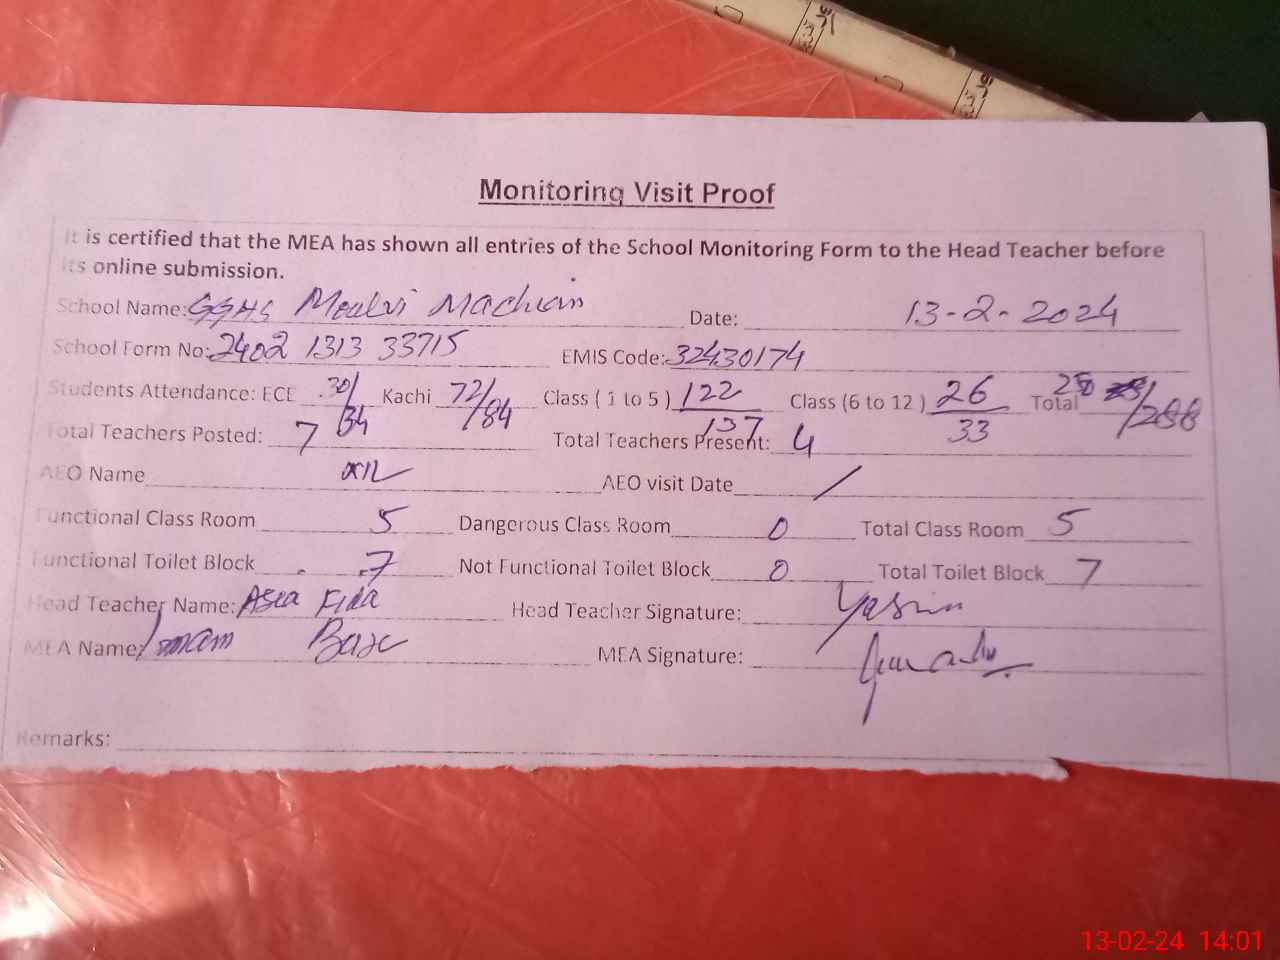 Monitoring Visit Proof
It is certified that the MEA has shown all entries of the School Monitoring Form to the Head Teacher before
its online submission.
School Name: GGHS Moalvi Machian Date: 13-2-2024
School Form No: 2402 1313 33715 EMIS Code: 32430174
Students Attendance: ECE 30/34 Kachi 72/84 Class ( 1 to 5 ) 122/137 Class (6 to 12 ) 26/33 Total /288
Total Teachers Posted: 7 Total Teachers Present: 4
AEO Name AEO visit Date /
Functional Class Room 5 Dangerous Class Room 0 Total Class Room 5
Functional Toilet Block 7 Not Functional Toilet Block 0 Total Toilet Block 7
Head Teacher Name: Asia Fida Head Teacher Signature: Yasmin
MEA Name: Imam Bax MEA Signature:
Remarks:
13-02-24 14:01